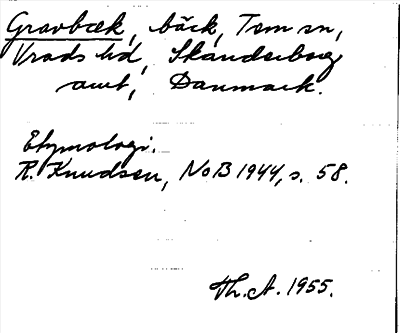 Gravbæk, bäck, Tem sn,
Vrads hd, Skanderborg
amt, Danmark.
Etymologi:
R. Knudsen, NoB 1944, s. 58.
Th. A. 1955.